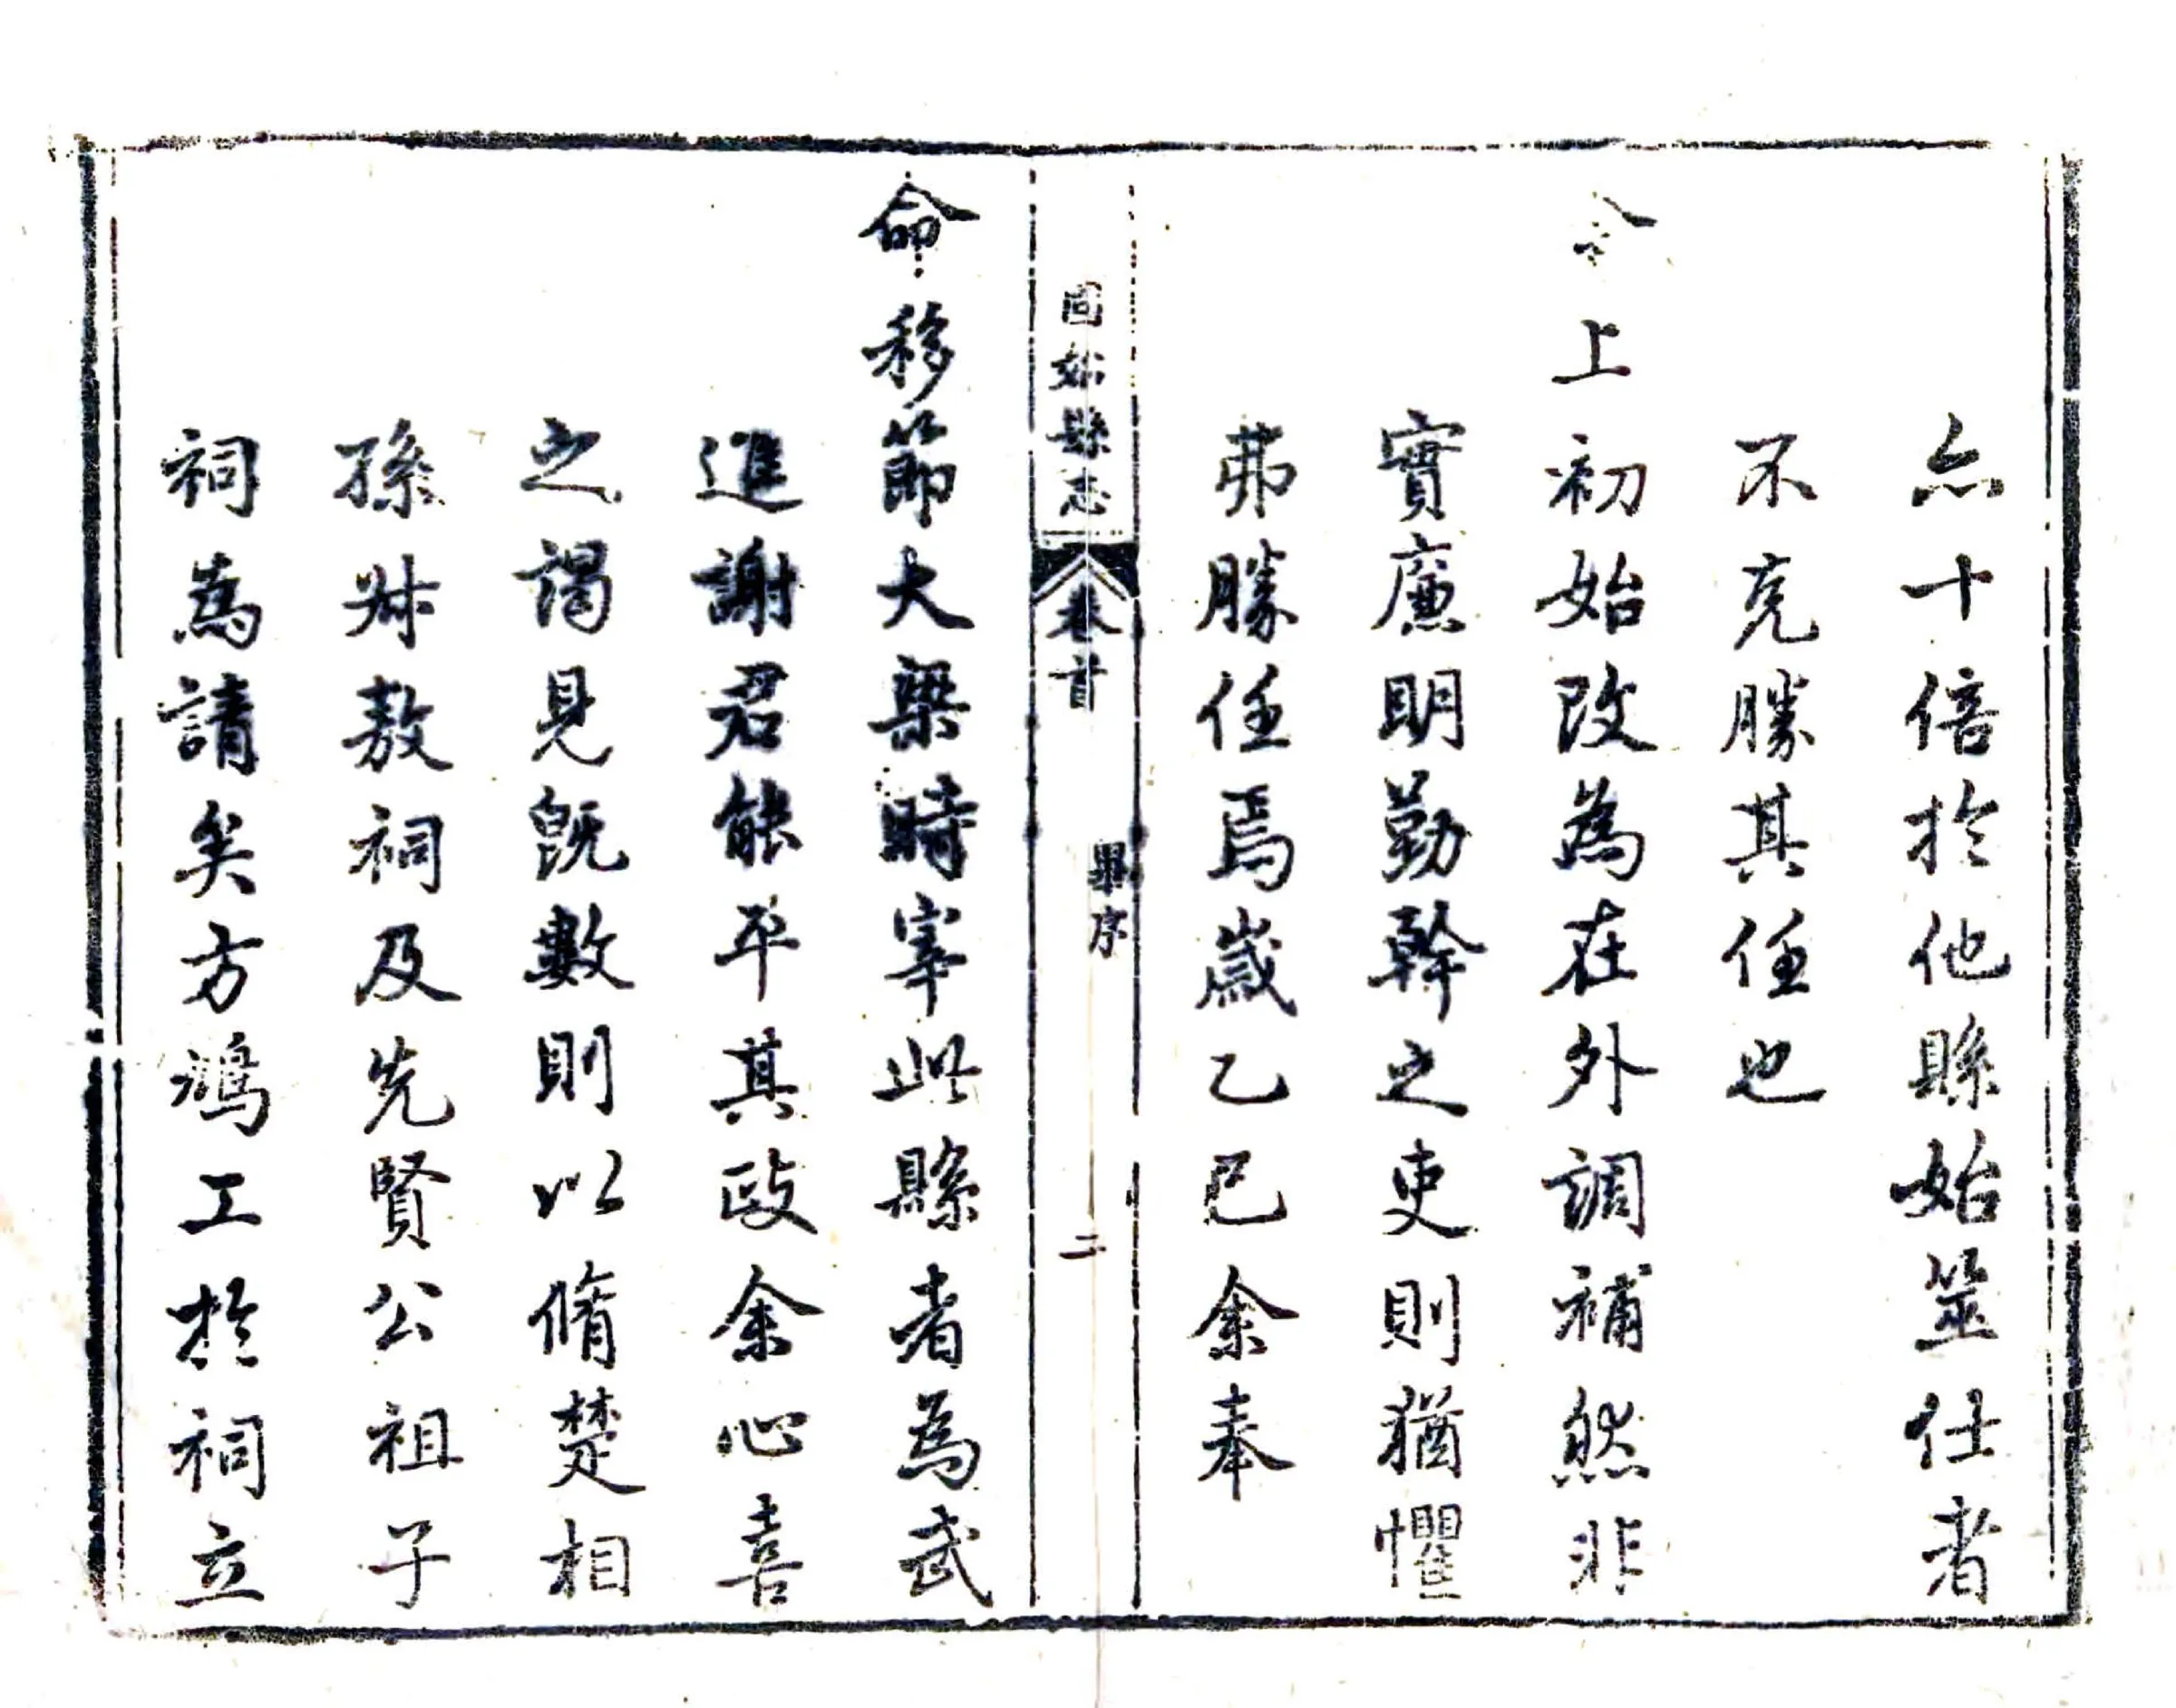 亦十倍於他縣始筮仕者
不克勝其任也
今上初始改為在外調補然非
實廉明勤幹之吏則猶懼
弗勝任焉歲乙巳余奉
固始縣志
卷首
畢序
二
命移節大梁時宰此縣者為武
進謝君能平其政余心喜
之謁見既數則以脩楚相
孫叔敖祠及先賢公祖子
祠為請矣方鳩工於祠立